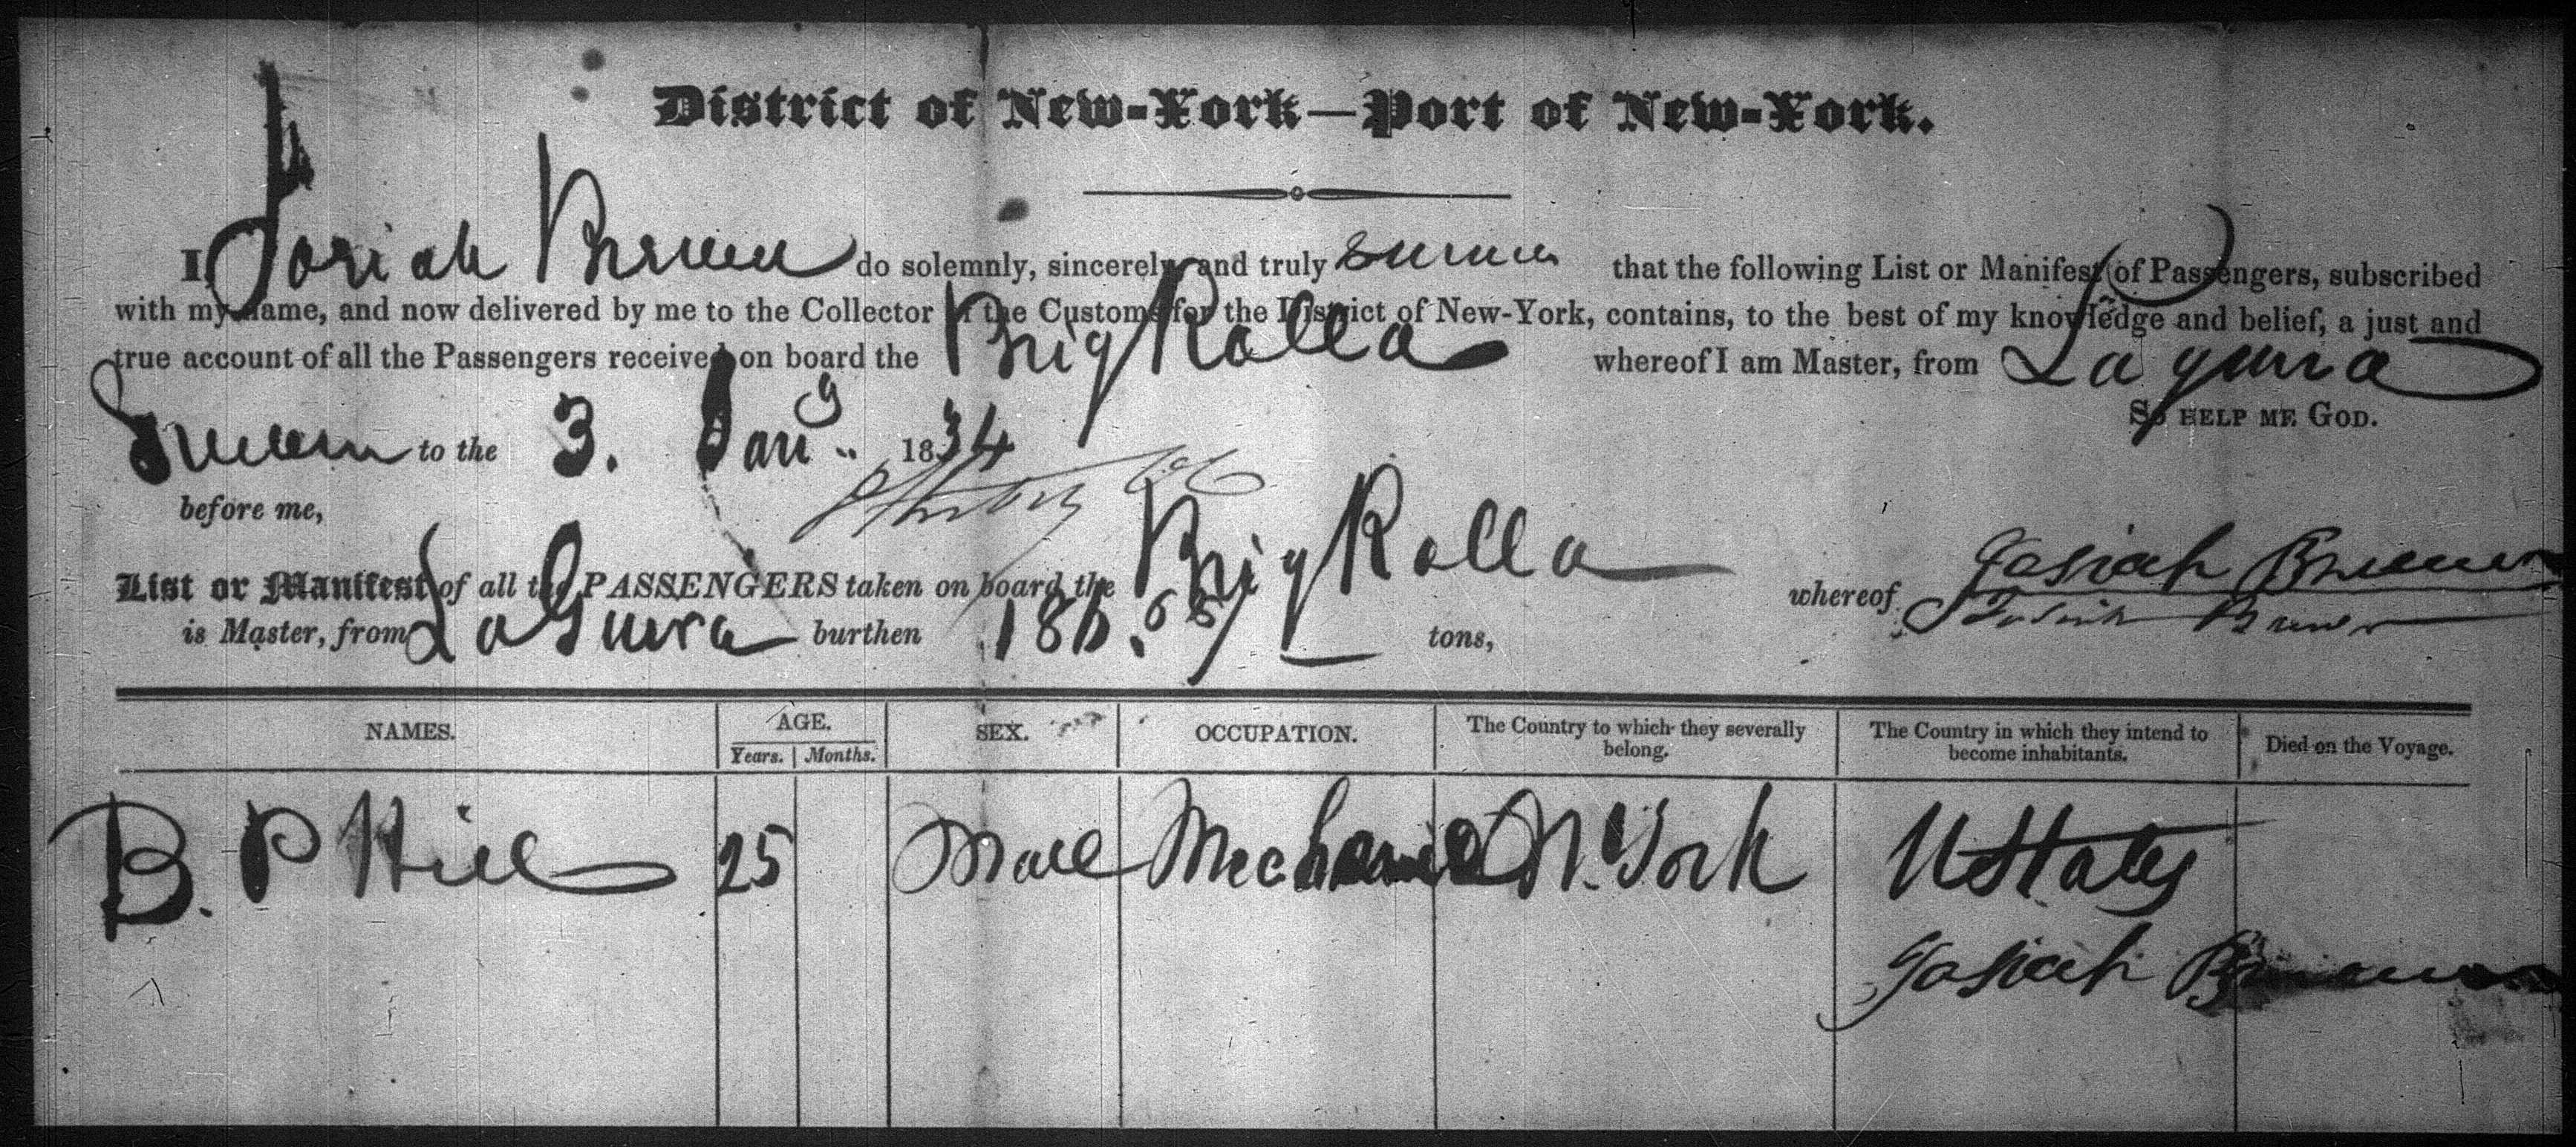 District of New-York—Port of New-York.
I, Josiah Brewer do solemnly, sincerely and truly swear that the following List or Manifest of Passengers, subscribed
with my name, and now delivered by me to the Collector of the Customs for the District of New-York, contains, to the best of my knowledge and belief, a just and
true account of all the Passengers received on board the Brig Rolla whereof I am Master, from Laguira
So help me God.
Sworn to the 3. Jany 1834
before me,
List or Manifest of all the PASSENGERS taken on board the Brig Rolla whereof Josiah Brewer
is Master, from LaGuira burthen tons, Josiah Brewer
NAMES. AGE. SEX. OCCUPATION. The Country to which they severally belong. The Country in which they intend to become inhabitants. Died on the Voyage.
Years. Months.
B. P Hill 25 Male Mechanic N. York U States
Josiah Brewer